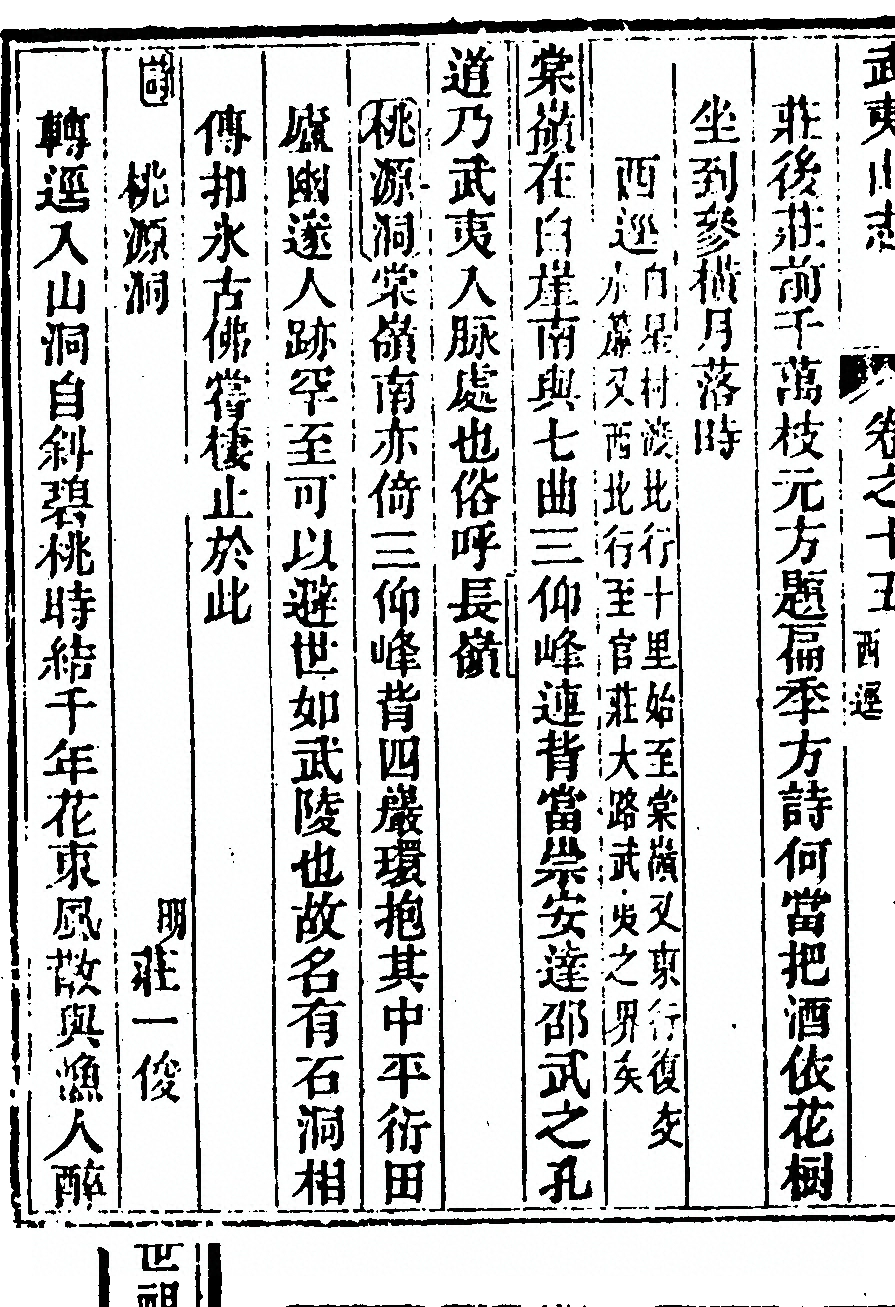 武夷山志 卷之十五 西逕
莊後莊前千萬枝元方題扁季方詩何當把酒依花樹
坐到參橫月落時
西逕 自星村渡北行十里始至棠嶺又東行復交
水簾又西北行至官莊大路武夷之界矣
棠嶺在白崖南與七曲三仰峰連背當崇安達邵武之孔
道乃武夷入脉處也俗呼長嶺
桃源洞棠嶺南亦倚三仰峰背四巖環抱其中平衍田
廬幽邃人跡罕至可以避世如武陵也故名有石洞相
傳扣氷古佛嘗棲止於此
詩 桃源洞 明莊一俊
轉逕入山洞自斜碧桃時結千年花東風散與漁人醉
世